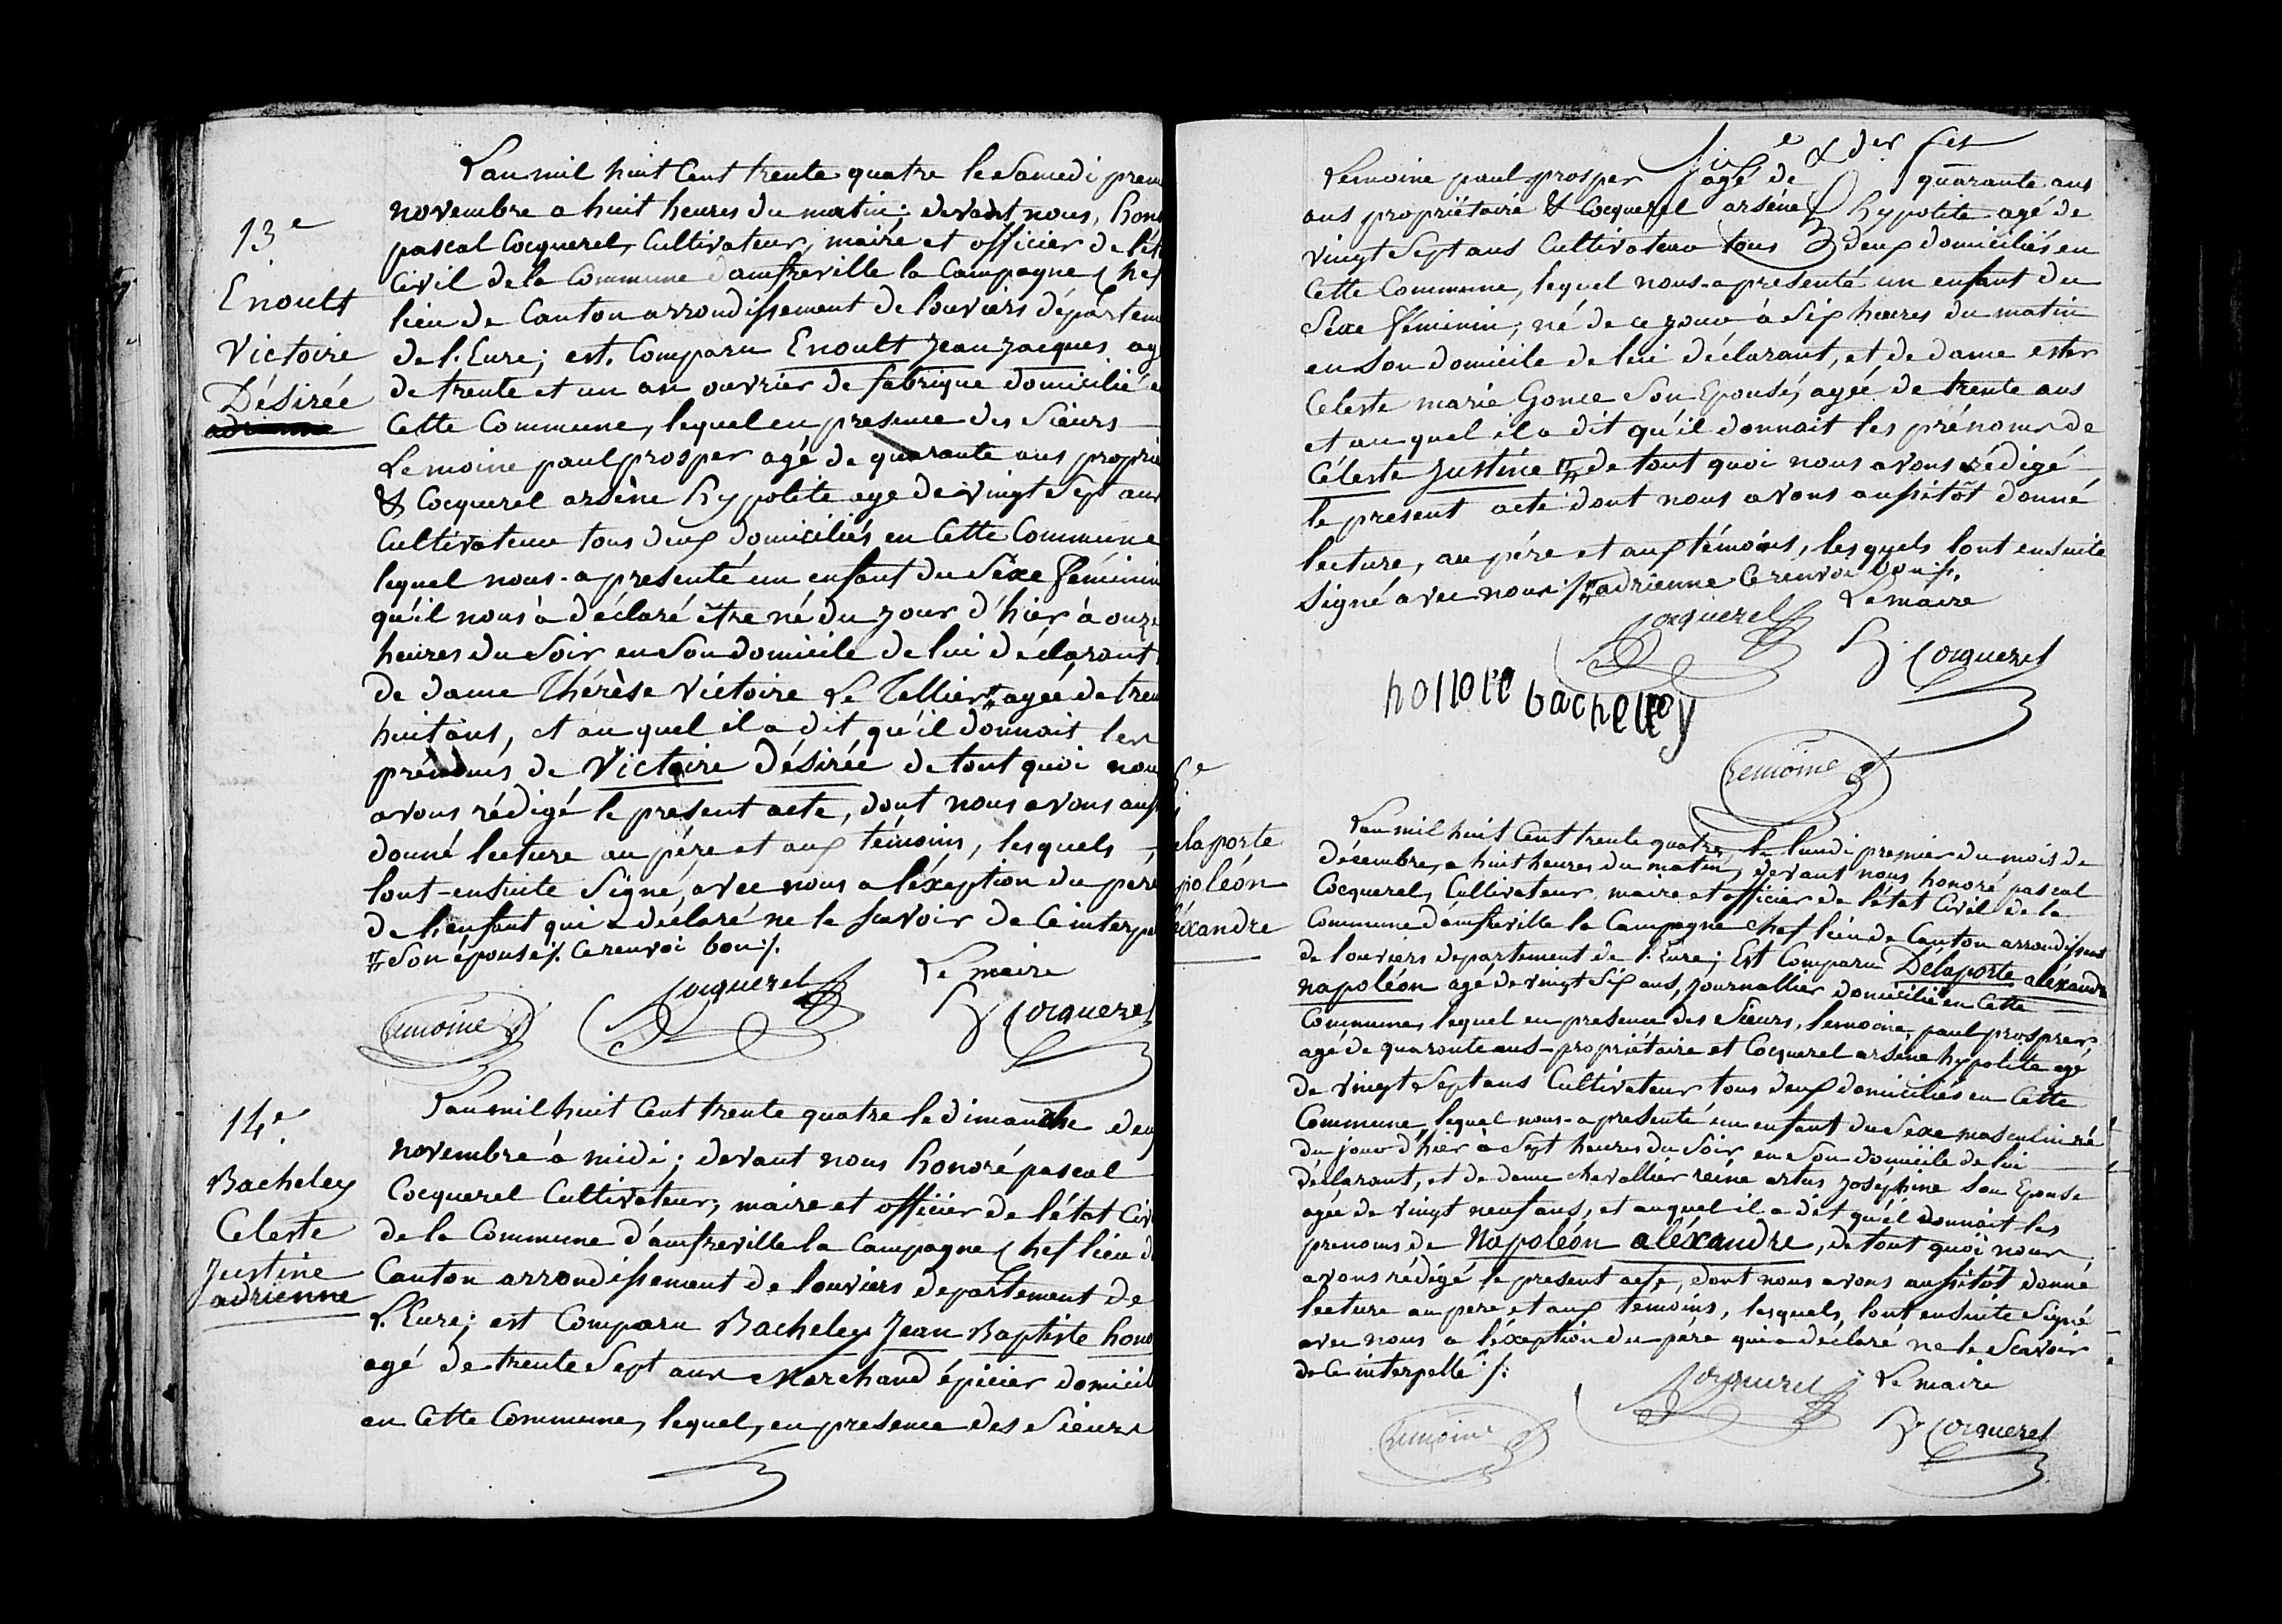 13e
Enoult
Victoire
Désirée
L'an mil huit Cent trente quatre le Samedi prem
novembre a huit heures du matin; devant nous, hono
pascal Cocquerel, Cultivateur, maire et officier de l'ét
Civil de la Commune d'amfreville la Campagne Chef
lieu de Canton arrondissement de louviers départem
de l'Eure; est Comparu Enoult jean jacques ag
de trente et un an ouvrier de fabrique domicilié e
Cette Commune, lequel en presence des Sieurs
Lemoine paul prosper agé de quarante ans proprié
& Cocquerel arsène hypolite age de vingt Sept ans
Cultivateur tous deux domiciliés en Cette Commune
lequel nous-a presenté un enfant du Séxe féminin
qu'il nous à déclaré être né du jour d'hier à onze
heures du Soir en Son domicile de lui déclarant
de dame Thérèse Victoire Le Tellier agée de tren
huit ans, et au quel il a dit qu'il donnait les
prénoms de Victoire Désirée de tout quoi nou
avons rédigé le présent acte, dont nous avons auss
donné lecture au père et aux témoins, lesquels
l'ont-ensuite Signé, avec nous a léxeption du pere
de l'enfant qui a déclaré ne le scavoir de Ce interpe
Son épouse ./. Ce renvoi bon ./.
Lemoine
Cocquerel
Le maire
h Cocquerel
14e
Bacheley
Celeste
Justine
adrienne
L'an mil huit Cent trente quatre le dimanche deu
novembre à midi; devant nous honoré pascal
Cocquerel Cultivateur, maire et officier de l'état Civ
de la Commune d'amfreville la Campagne Chef lieu d
Canton arrondissement de louviers département de
L'Eure; est Comparu Bacheley Jean Baptiste hono
agé de trente Sept ans Marchand épicier domicil
en Cette Commune, lequel, en presence des Sieurs
6e & der fet
Lemoine paul prosper agé de quarante ans
ans propriétaire & Cocquerel arséne hypolite agé de
vingt Sept ans Cultivateur tous deux domiciliés en
Cette Commune, lequel nous-a presenté un enfant du
Séxe féminin; né de ce jour à Six heures du matin
en Son domicile de lui déclarant, et de dame ester
Celeste marie Gonce Son Epouse, agée de trente ans
et au quel il a dit qu'il donnait les prénoms de
Céleste Justine de tout quoi nous avons rédigé
le present acte dont nous avons aussitôt donné
lecture, au père et aux témoins, lesquels l'ont ensuite
Signé avec nous ./. adrienne Ce renvoi bon ./.
Cocquerel
Le maire
h Cocquerel
honoré bacheley
Lemoine
elaporte
poléon
léxandre
L'an mil huit Cent trente quatre, le lundi premier du mois de
décembre, a huit heures du matin, devant nous honoré pascal
Cocquerel, Cultivateur maire et officier de l'état Civil de la
Commune d'amfreville la Campagne Chef lieu de Canton arrondissent
de louviers departement de l'Eure; Est Comparu Delaporte aléxandre
Napoléon agé de vingt Six ans, journallier domicilié en Cette
Commune, lequel en presence des Sieurs, lemoine, paul prosper,
agé de quarante ans-propriétaire et Cocquerel arséne hypolite agé
de vingt Sept ans Cultivateur tous deux domiciliés en Cette
Commune, lequel nous-a presenté un enfant du Sexe masculin né
du jour d'hier à Sept heures du Soir en Son domicile de lui
déclarant, et de dame chevallier reine artus joséphine Son Epouse
agée de vingt neuf ans, et auquel il a dit qu'il donnait les
prenoms de Napoléon aléxandre, de tout quoi nous
avons rédigé le present acte, dont nous avons aussitôt donné
lecture au pere et aux temoins, lesquels, l'ont ensuite Signé
avec nous a léxeption du pére qui a déclaré ne le Scavoir
de Ce interpellé ./.
Lemoine
Cocquerel
Le maire
h Cocquerel